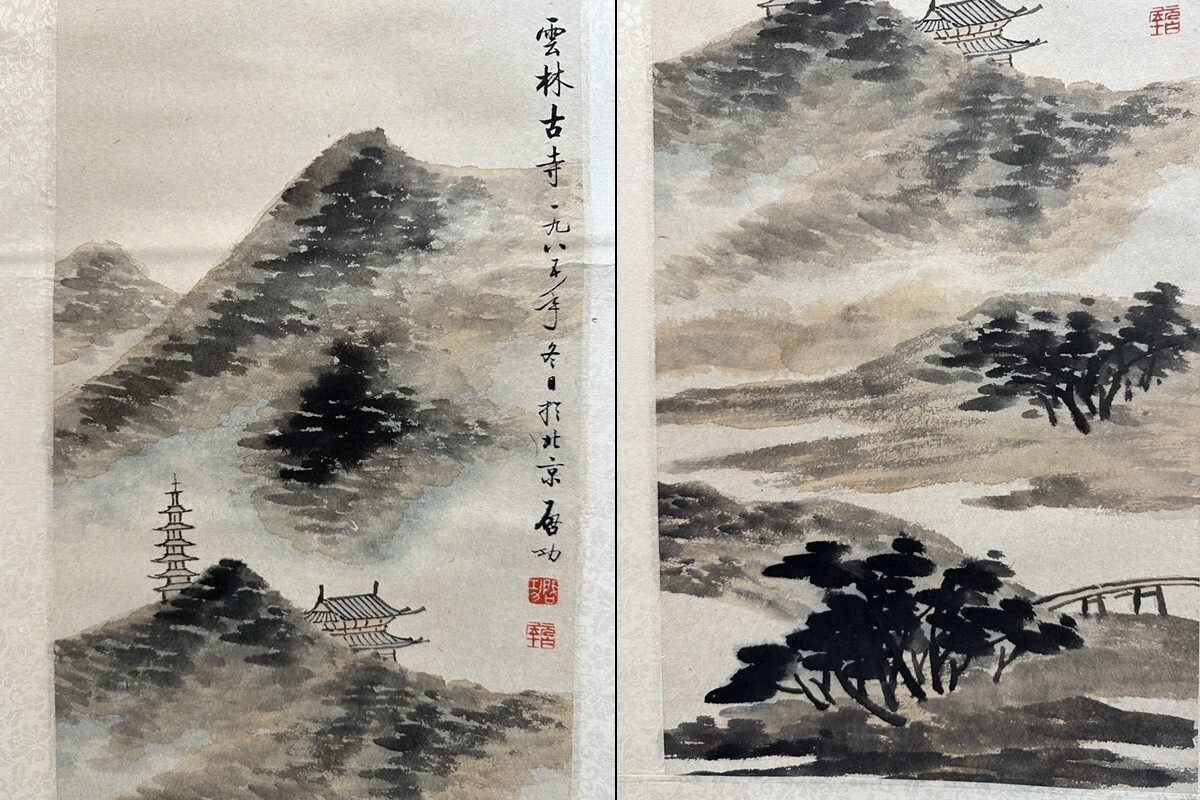 雲林古寺一九八五年冬日於北京啟功
啟功